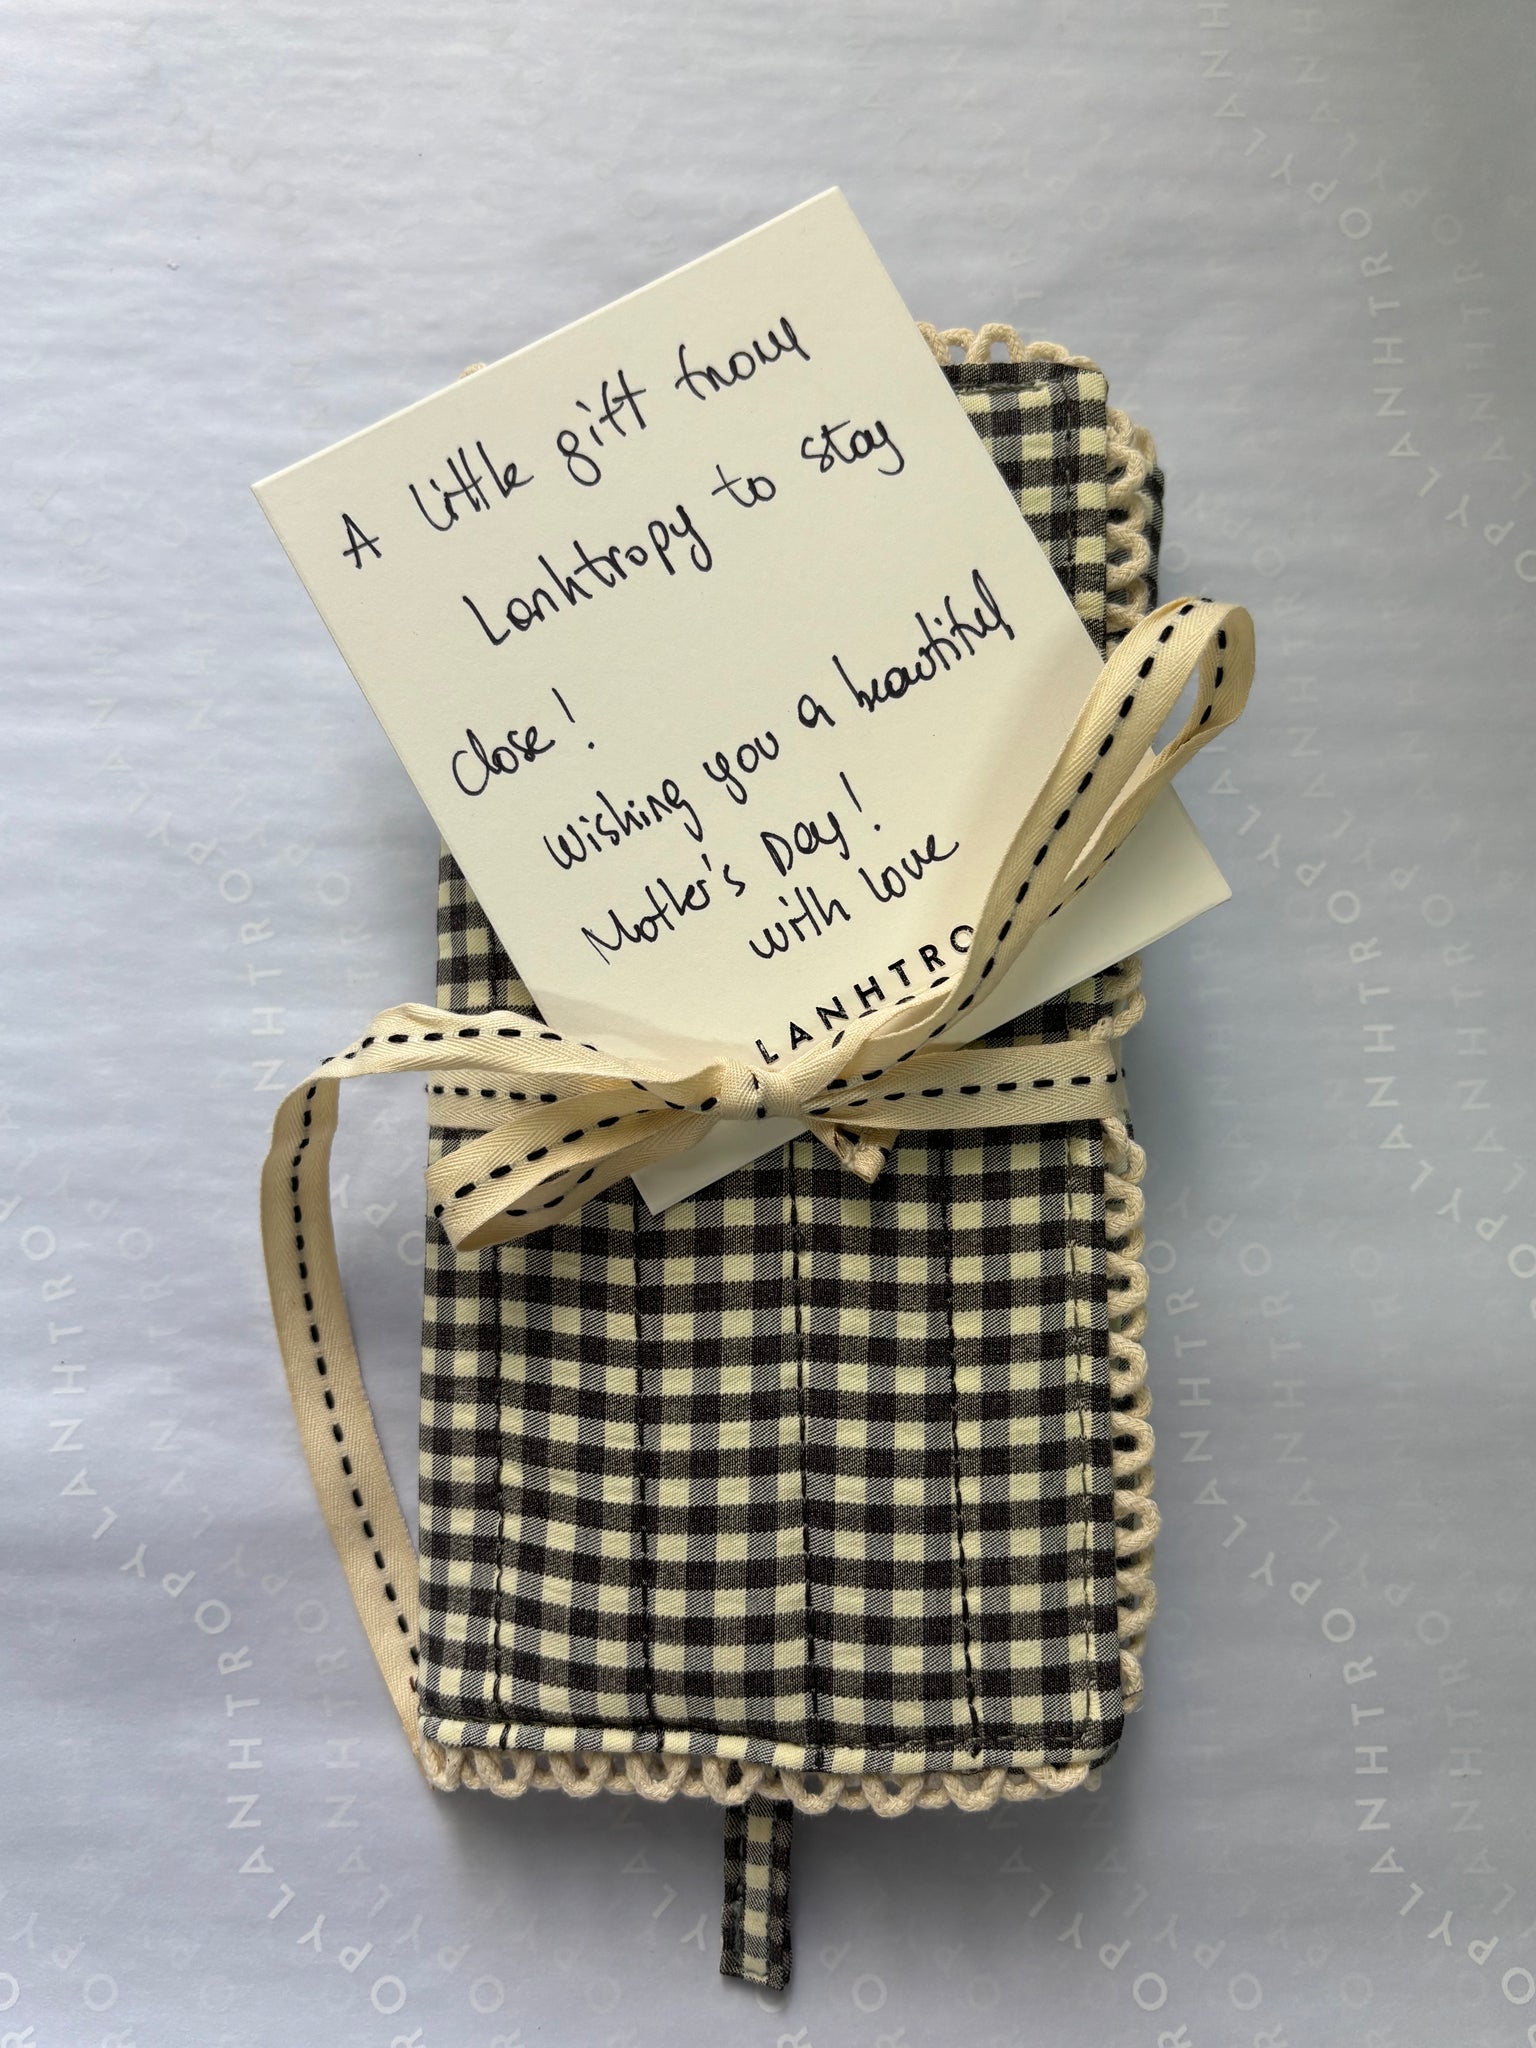 A little gift from
Lanhtropy to stay
close!
Wishing you a beautiful
Mother's Day!
with love
LANHTRO
LANHTROPY
LANHTROPY
LANHTROPY
LANHTROPY
LANHTROPY
LANHTROPY